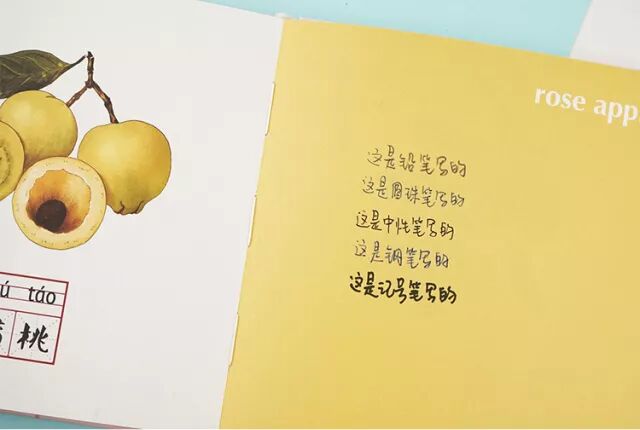 ú táo
桃
rose app
这是铅笔写的
这是圆珠笔写的
这是中性笔写的
这是钢笔写的
这是记号笔写的